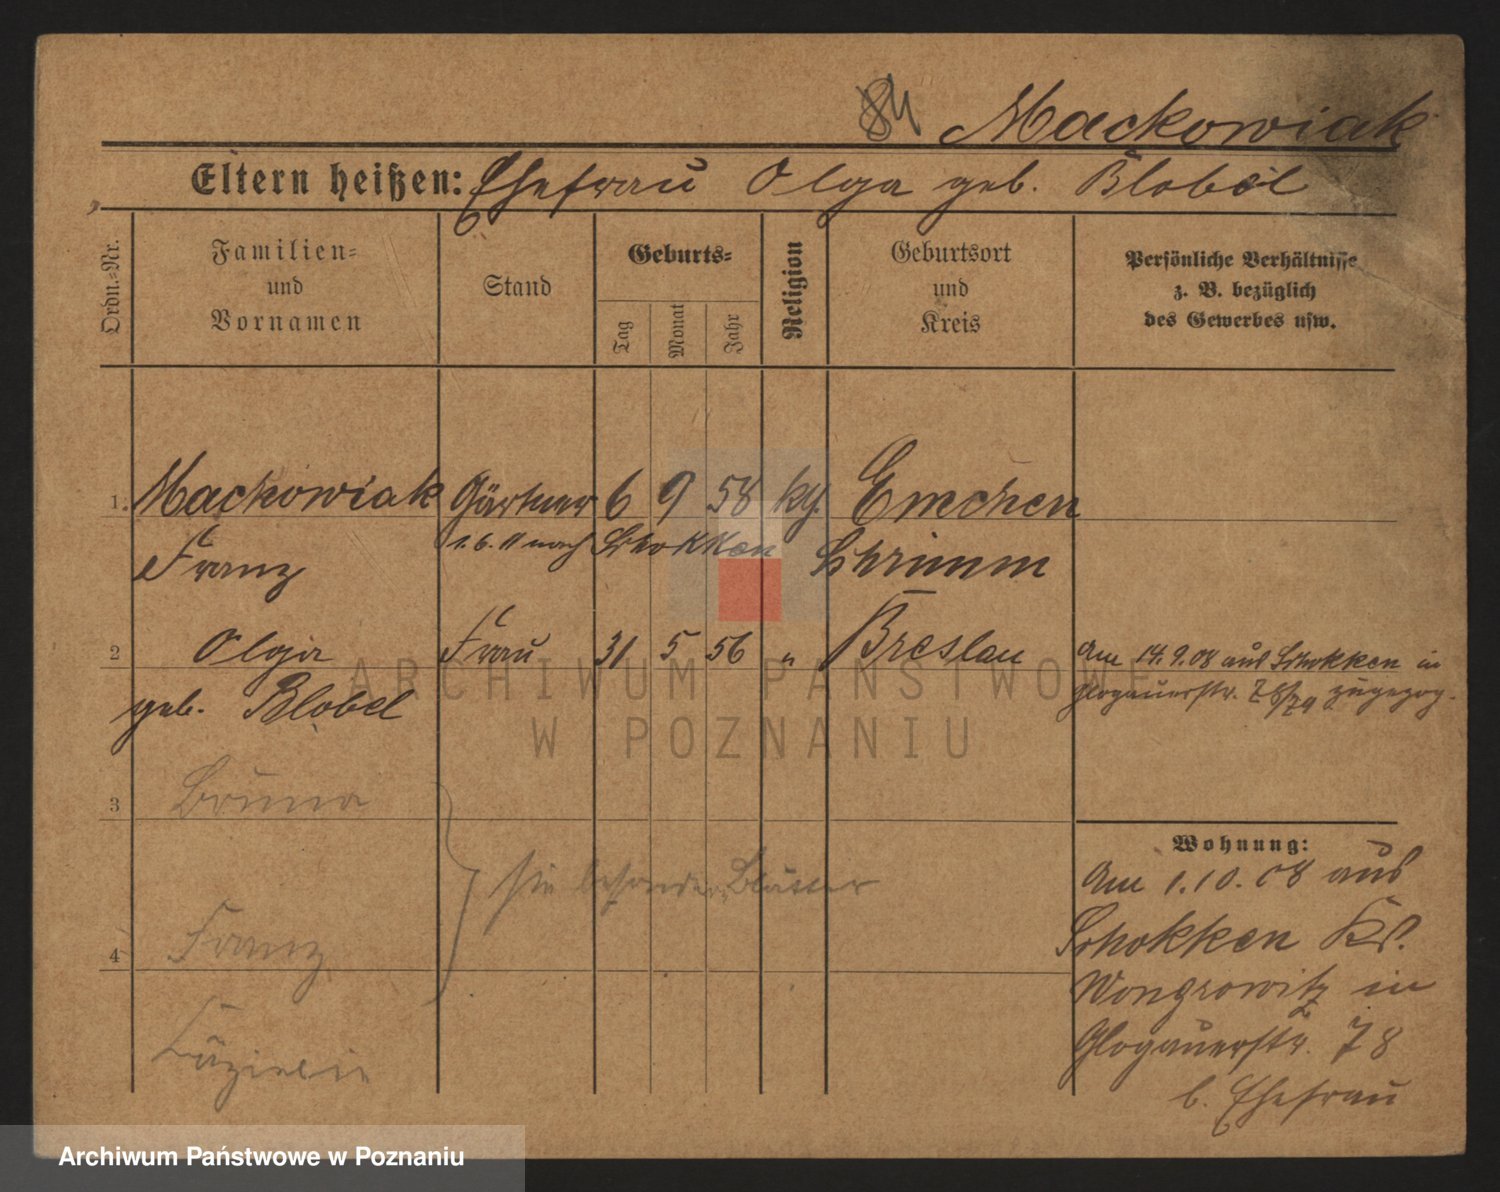 84 Mackowiak
Eltern heißen: Ehefrau Olga geb. Blobel
Ordn.-Nr.
Familien-
und
Vornamen
Stand
Geburts-
Tag
Monat
Jahr
Religion
Geburtsort
und
Kreis
Persönliche Verhältnisse
z. B. bezüglich
des Gewerbes usw.
1. Mackowiak Gärtner 6 9 58 kg. Emchen
1. 6. 11 nach Schokken
Franz Schrimm
2 Olga Frau 31 5 56 " Breslau
geb. Blobel
Am 14.9.08 aus Schokken in
Glogauerstr. 78/79 zugezog.
3 Bruno
4 Franz
besondere Blätter
Wohnung:
Am 1.10.08 aus
Schokken Kr.
Wongrowitz in
Glogauerstr. 78
b. Ehefrau
ARCHIWUM PAŃSTWOWE
W POZNANIU
Archiwum Państwowe w Poznaniu